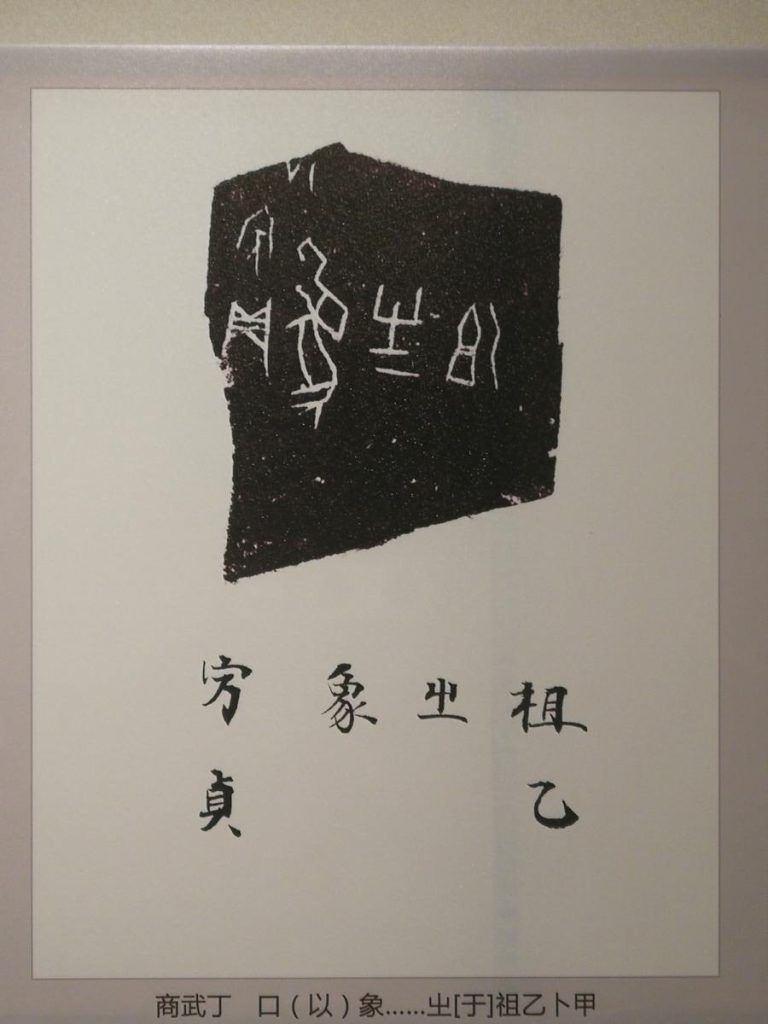 貞
象
㞢
祖乙
商武丁 口（以）象……㞢[于]祖乙卜甲